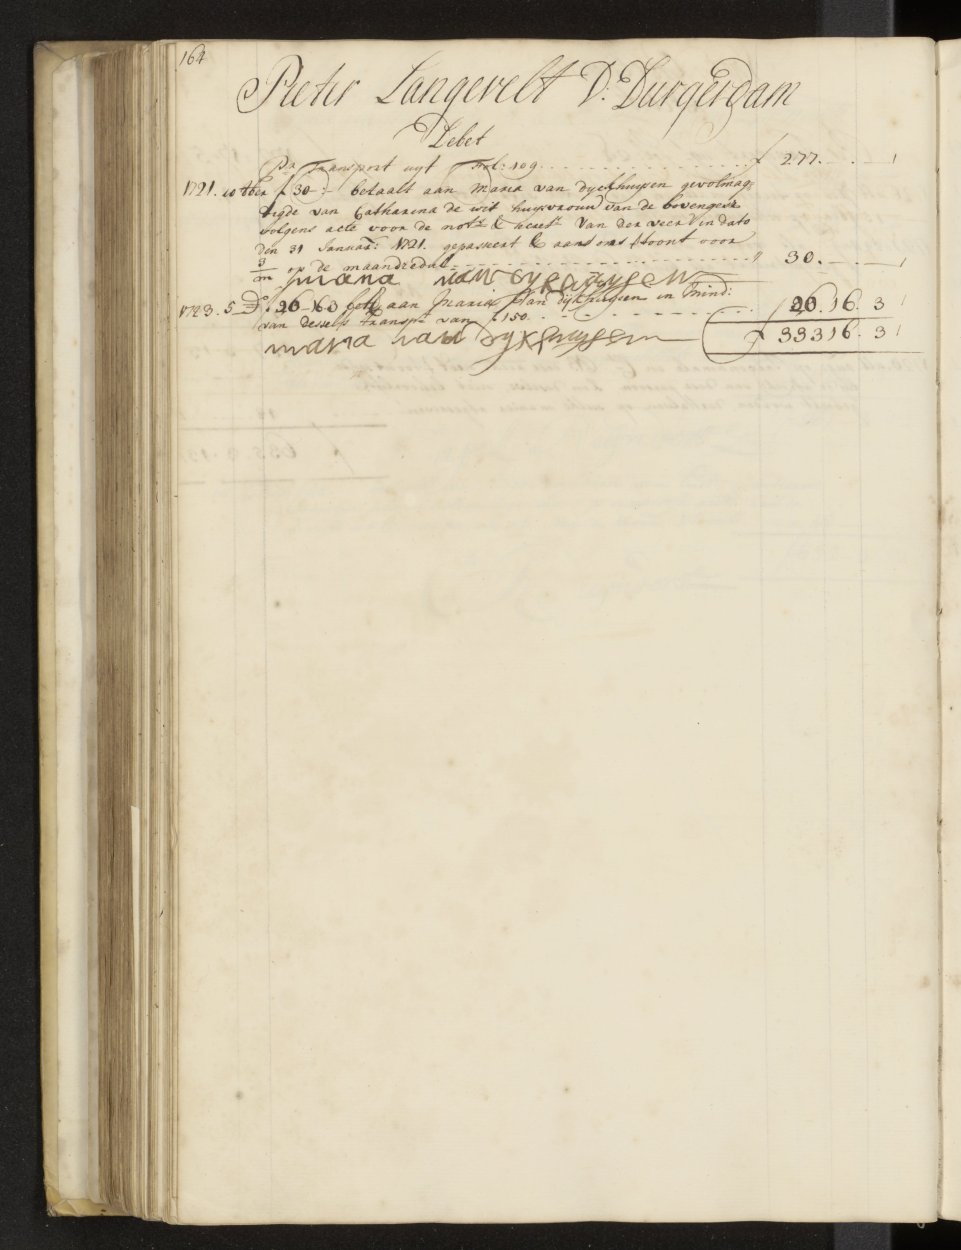 164
Pieter Langevelt V: Durgerdam
Debet
Pr Transport uyt Fol: 109 f 277. - -
1721. 10 xber f 30 - : - betaalt aan Maria van dyckhuysen gevolmag-
tigde van Catharina de wit huysvrouw van de bovengesz
volgens acte voor de nots & van der veer in dato
den 31 Januar: 1721. gepasseert & aan ons ver toont voor
3/m op de maandcedul " 30. - -
maria van dykhuysen
1723. 5 Do f 26 - 16 - 3 bet aan Maria Van dijkhuysen in mind:
van desselfs transpt van f 150 - 26. 16. 3
maria van dykhuysen f 333 16. 3